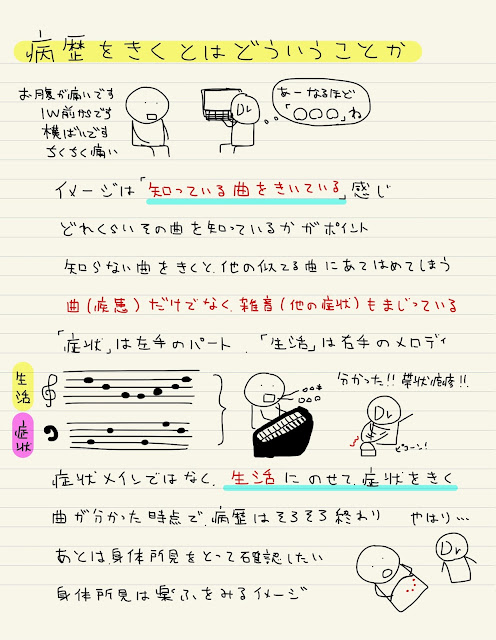 病歴をきくとはどういうことか
お腹が痛いです
1W前からです
横ばいです
ちくちく痛い
Dr
あーなるほど
「〇〇〇」ね
イメージは「知っている曲をきいている」感じ
どれくらいその曲を知っているかがポイント
知らない曲をきくと、他の似てる曲にあてはめてしまう
曲(疾患)だけでなく、雑音(他の症状)もまじっている
「症状」は左手のパート、「生活」は右手のメロディ
生活
症状
分かった!!帯状疱疹!!
Dr
ピコーン!
症状メインではなく、生活にのせて、症状をきく
曲が分かった時点で、病歴はそろそろ終わり
やはり…
Dr
あとは、身体所見をとって確認したい
身体所見は楽ふをみるイメージ